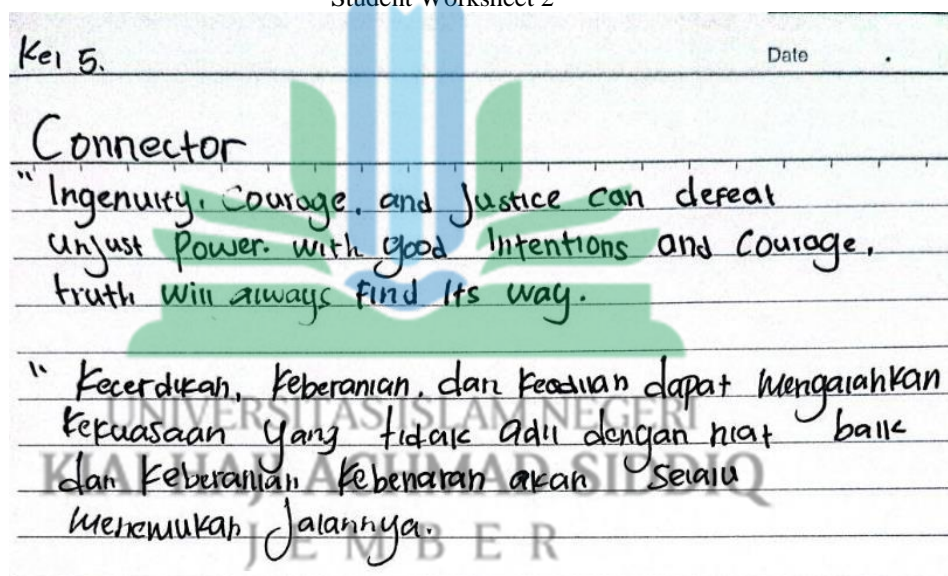 Student Worksheet 2
Kel 5.
Date .
Connector
" Ingenuity, Courage, and Justice can defeat
unjust Power. with good Intentions and Courage,
truth Will always Find Its way.
" Kecerdikan, Keberanian, dan Keadilan dapat Mengalahkan
Kekuasaan yang tidak adil dengan niat baik
dan Keberanian Kebenaran akan Selalu
Menemukan Jalannya.
UNIVERSITAS ISLAM NEGERI
KIAI HAJI ACHMAD SIDDIQ
JEMBER